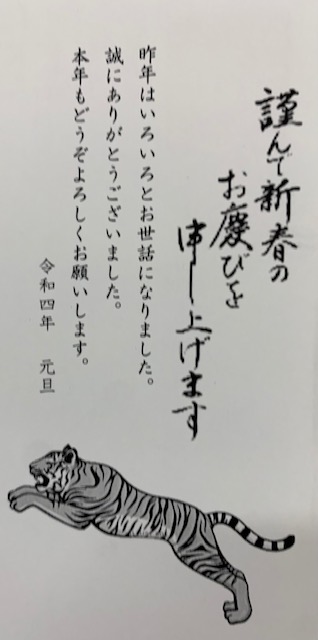 謹んで新春の
お慶びを
申し上げます
昨年はいろいろとお世話になりました。
誠にありがとうございました。
本年もどうぞよろしくお願いします。
令和四年　元旦